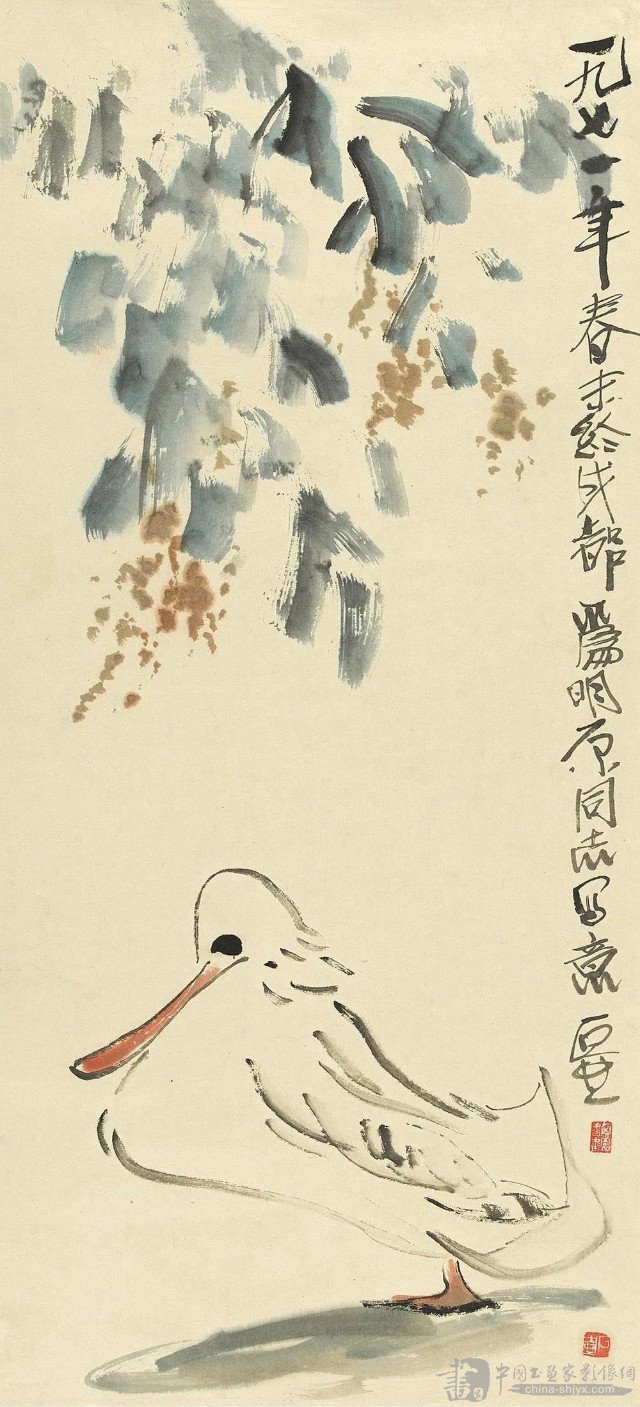 一九七一年春末於成都為明原同志写意 石壶
書
中国书画家影像網
china-shjyx.com